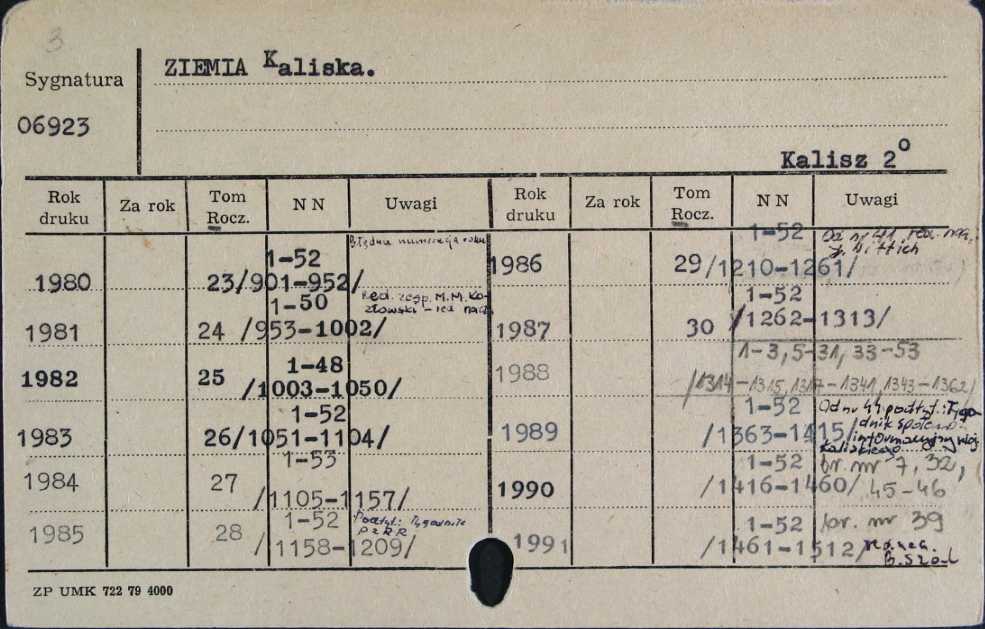 3
Sygnatura ZIEMIA Kaliska.
06923
Kalisz 2°
Rok druku Za rok Tom Rocz. N N Uwagi Rok druku Za rok Tom Rocz. N N Uwagi
1980 23/901-952/ 1-52 Błędna numeracja roku
1981 24 /953-1002/ 1-50 Red. zesp. M.M. Kozłowski - red nacz.
1982 25 /1003-1050/ 1-48
1983 26/1051-1104/ 1-52
1984 27 /1105-1157/ 1-53
1985 28 /1158-1209/ 1-52 Podtyt: Tygodnik PZPR
1986 29/1210-1261/ 1-52 Od nr 41 red. nacz.
1987 30 /1262-1313/ 1-52
1988 1-3, 5-31, 33-53 /1314-1315, 1317-1341, 1343-1362/
1989 /1363-1415/ 1-52 Od nr 44 podtyt.: Tygodnik społeczno-informacyjny woj. kaliskiego
1990 /1416-1460/ 1-52 br. nr 7, 32, 45-46
1991 /1461-1512/ 1-52 br. nr 39
ZP UMK 722 79 4000